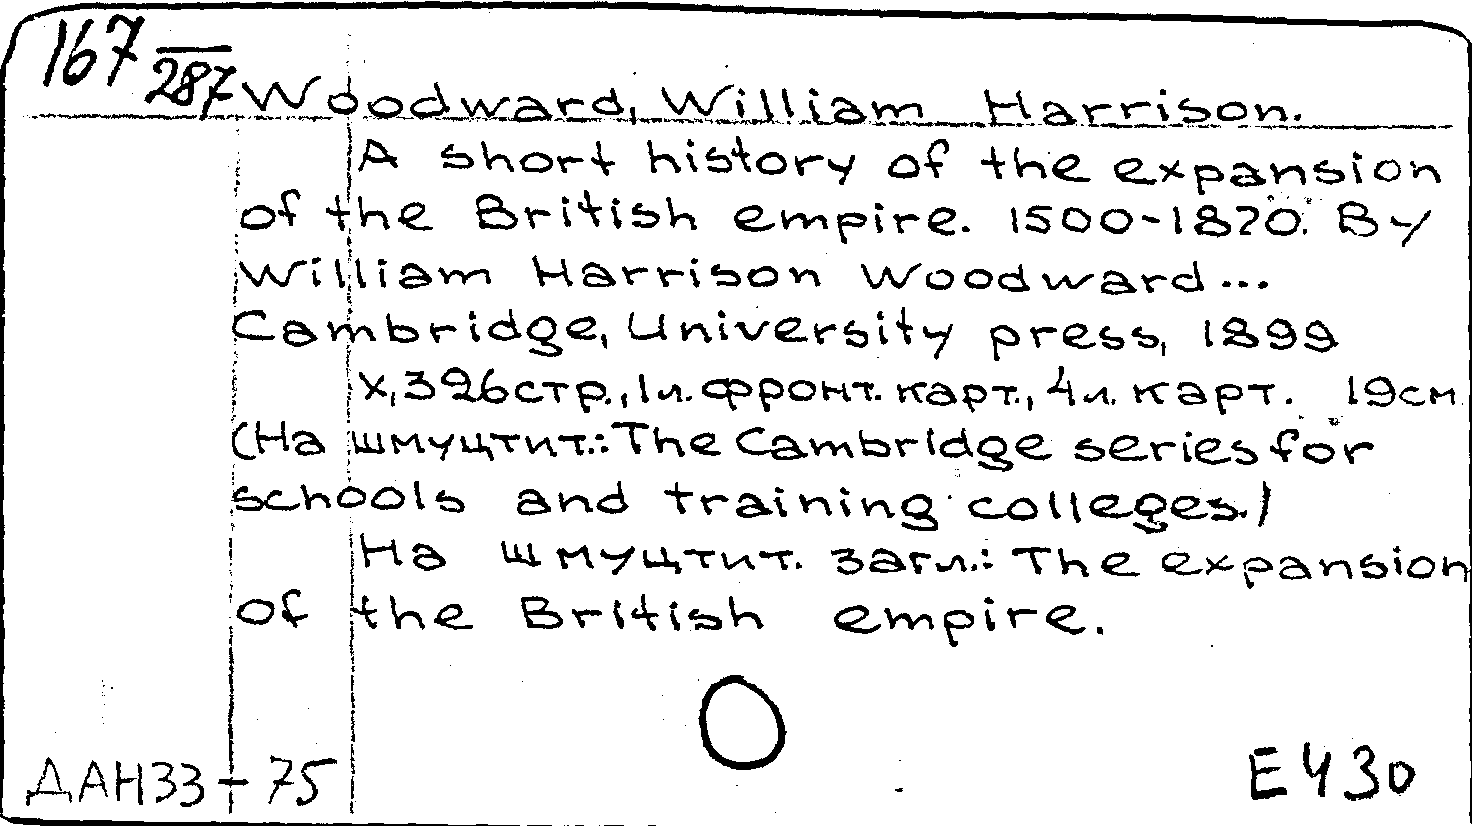 167
287
Woodward, William Harrison.
A short history of the expansion
of the British empire. 1500-1870. By
William Harrison Woodward...
Cambridge, University press, 1899
X, 326 стр., 1 л. фронт. карт., 4 л. карт. 19 см
(На шмуцтит.: The Cambridge series for
schools and training colleges.)
На шмуцтит. загл.: The expansion
of the British empire.
ДАН33-75
Е430